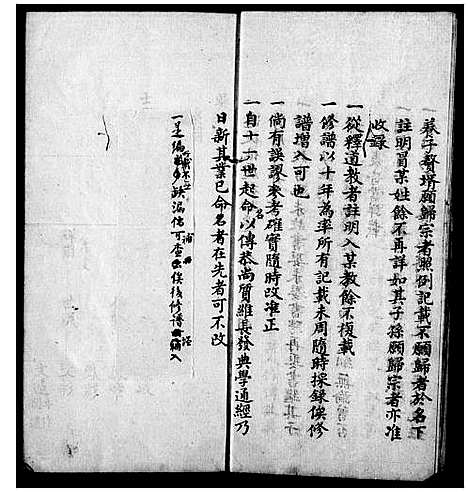 一養子贅壻願歸宗者照例記載不願歸者於名下
註明冐某姓餘不再詳如其子孫願歸宗者亦准
收錄
一從釋道教者註明入某教餘不複載
一修譜以十年為率所有記載未周隨時採錄俟修
譜增入可也
一倘有誤謬來考確實隨時改准正
一自十六世起命名以傳恭尚質維真發典學通經乃
日新其業已命名者在先者可不改
一是編缺漏儘可查出俟後修譜編入